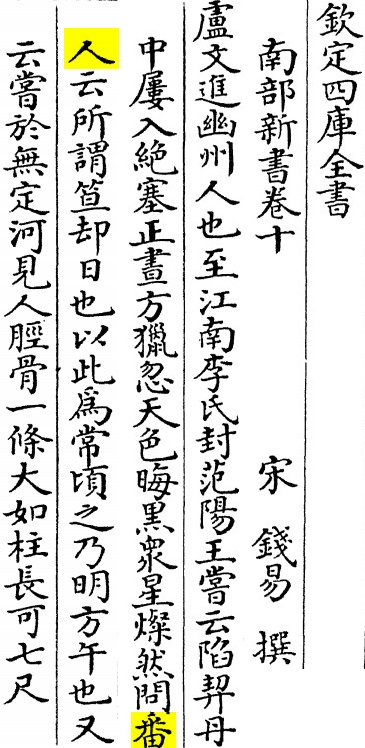 欽定四庫全書
南部新書卷十
宋 錢易 撰
盧文進幽州人也至江南李氏封范陽王嘗云陷契丹
中屢入絶塞正晝方獵忽天色晦黒衆星燦然問番
人云所謂笪却日也以此爲常頃之乃明方午也又
云嘗於無定河見人脛骨一條大如柱長可七尺